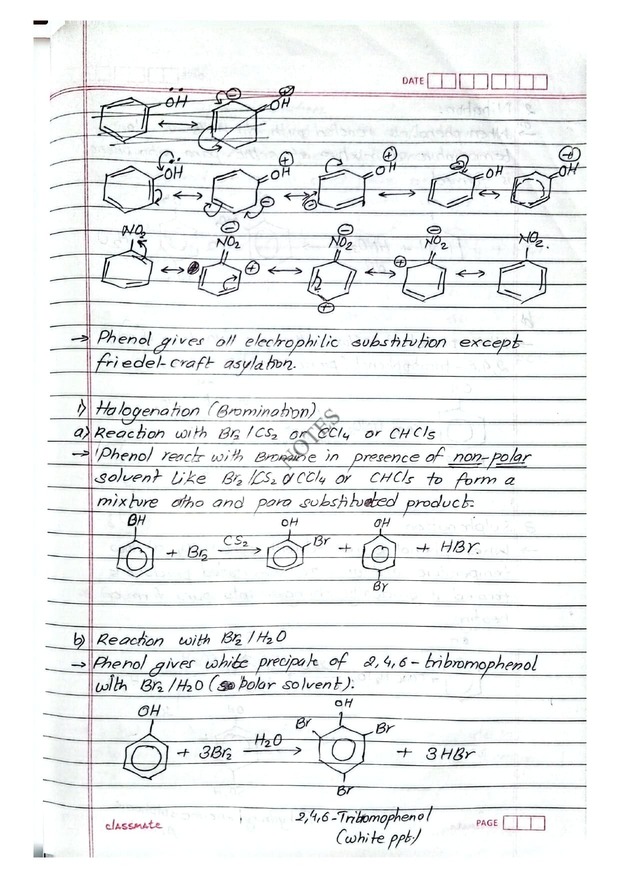 DATE
OH OH
OH OH OH OH OH
NO2 NO2 NO2 NO2 NO2.
→ Phenol gives all electrophilic substitution except
friedel-craft asylation.
1) Halogenation (Bromination)
a) Reaction with Br2 / CS2 or CCl4 or CHCl3
→ Phenol reacts with Bromine in presence of non-polar
solvent like Br2 / CS2 or CCl4 or CHCl3 to form a
mixture otho and para substituted product.
OH OH OH
+ Br2 CS2 → Br + + HBr.
Br
b) Reaction with Br2 / H2O
→ Phenol gives white precipate of 2,4,6-tribromophenol
with Br2 / H2O (polar solvent).
OH OH
Br Br
+ 3Br2 H2O → + 3HBr
Br
2,4,6-Tribomophenol
(white ppt.)
classmate PAGE
NOTES